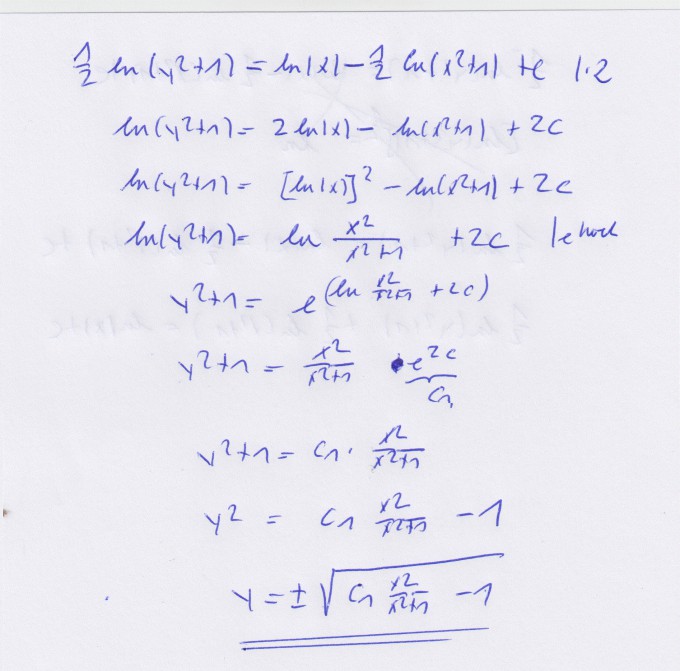 ½ ln(y²+1) = ln|x| - ½ ln(x²+1) + c |·2
ln(y²+1) = 2 ln|x| - ln(x²+1) + 2c
ln(y²+1) = [ln|x|]² - ln(x²+1) + 2c
ln(y²+1) = ln x²/(x²+1) + 2c |e hoch
y²+1 = e^(ln x²/(x²+1) + 2c)
y²+1 = x²/(x²+1) · e^(2c)
C₁
y²+1 = C₁ · x²/(x²+1)
y² = C₁ x²/(x²+1) - 1
y = ± √(C₁ x²/(x²+1) - 1)